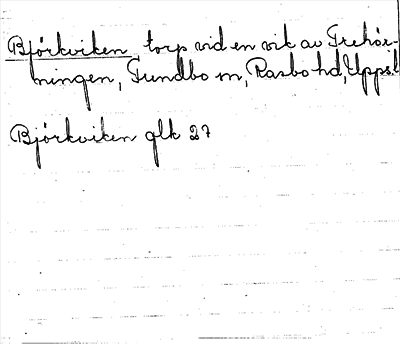 Björkviken, torp vid en vik av Trehör-
ningen, Funbo sn, Rasbo hd, Uppsl
Björkviken glk 27